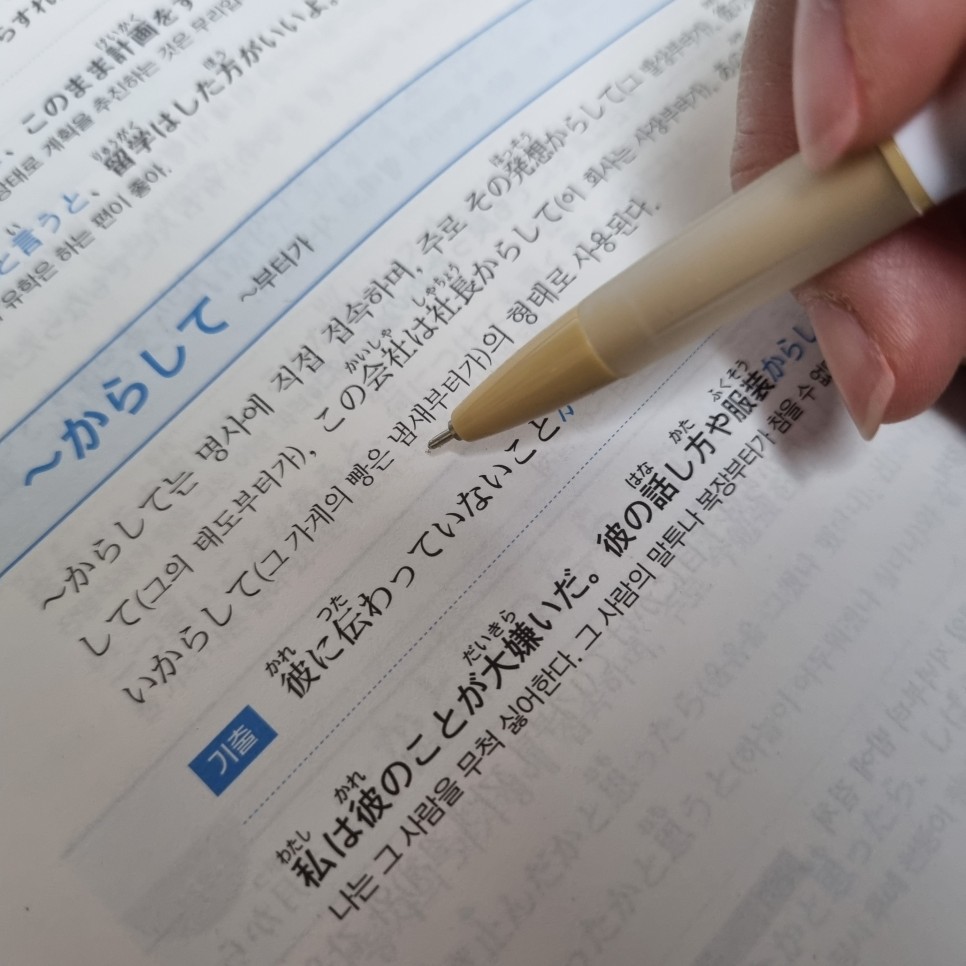 このまま計画をす
형태로 계획을 추진하는 것은 무리입
と言うと、留学はした方がいいよ。
유학은 하는 편이 좋아.
～からして ～부터가
～からして는 명사에 직접 접속하며, 주로 その発想からして(그 발상부터가),
して(그의 태도부터가), この会社は社長からして(이 회사는 사장부터가),
いからして(그 가게의 빵은 냄새부터가)의 형태로 사용된다.
기출 彼に伝わっていないこと
私は彼のことが大嫌いだ。彼の話し方や服装からし
나는 그 사람을 무척 싫어한다. 그 사람의 말투나 복장부터가 참을 수 없